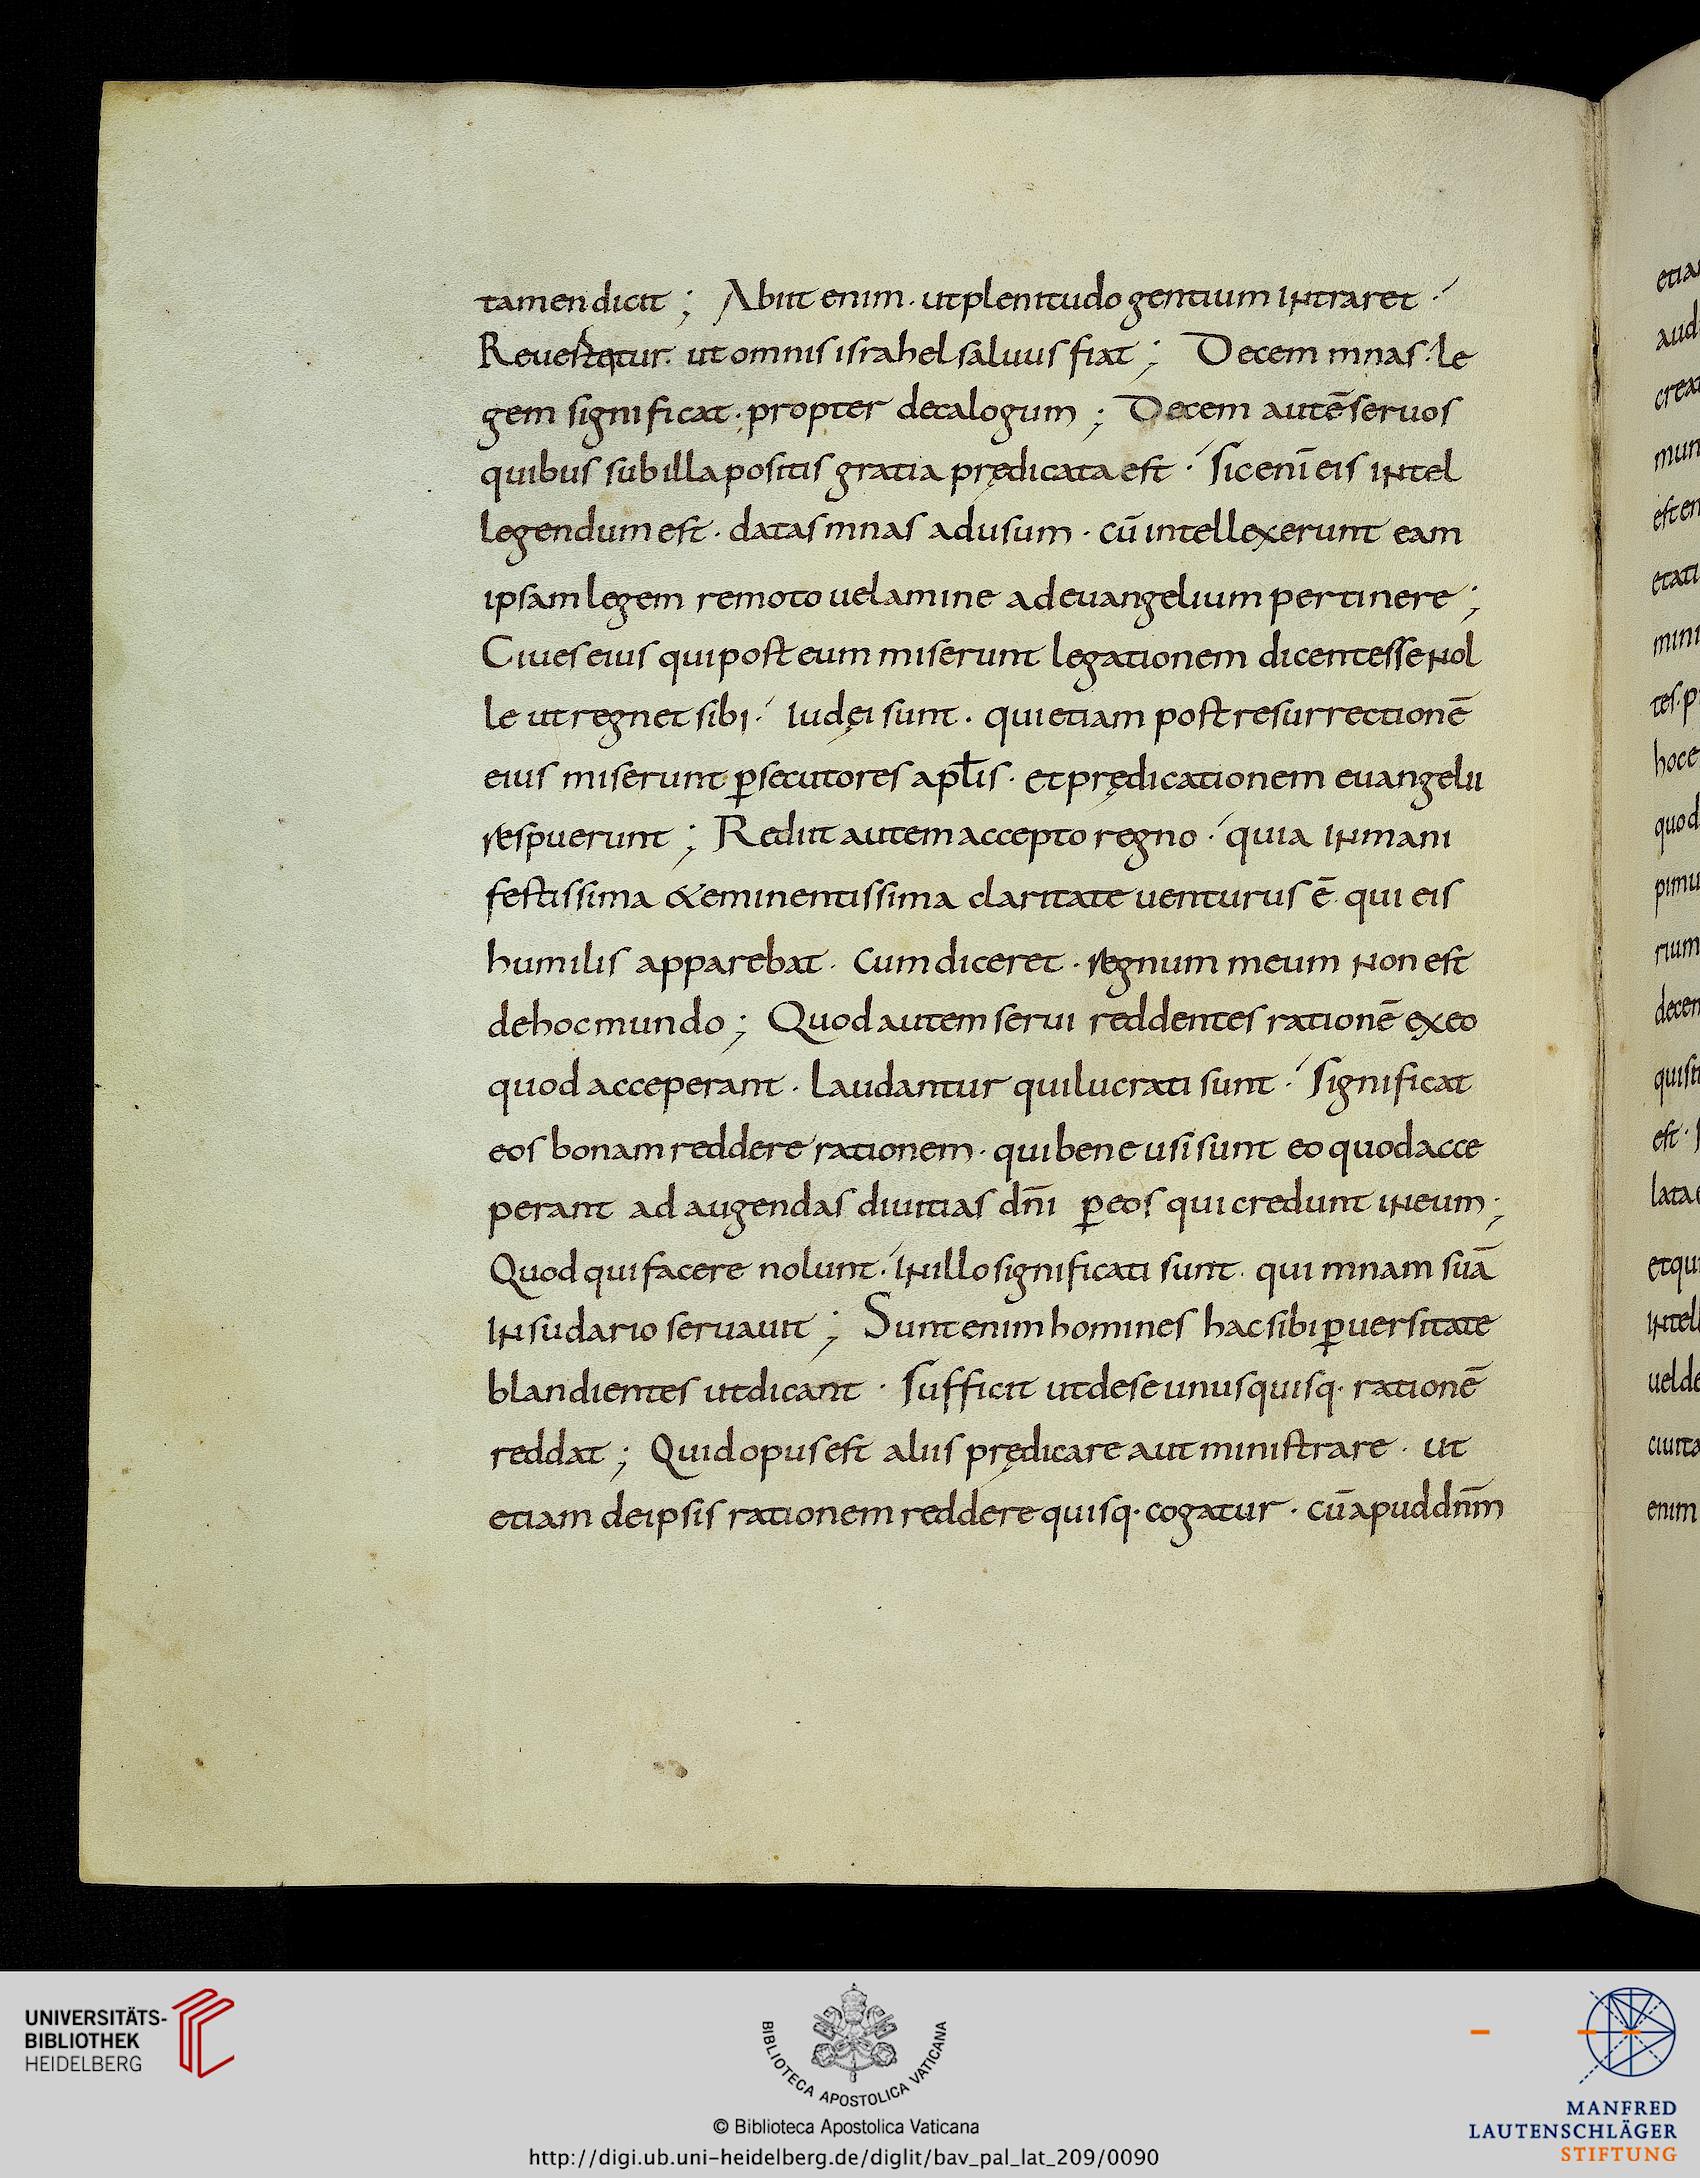 tamen dicit ; Abiit enim · ut plenitudo gentium intraret ·
ut omnis israhel saluus fiat ; Decem mnas · le
gem significat · propter decalogum ; Decem autē seruos
quibus sub illa positis gratia prędicata est · sic enī eis intel
legendum est · datas mnas ad usum · cū intellexerunt eam
ipsam legem remoto uelamine ad euangelium pertinere ;
Ciues eius qui post eum miserunt legationem dicentes se nol
le ut regnet sibi · iudęi sunt · qui etiam post resurrectionē
eius miserunt p̱secutores apl̄is · et prędicationem euangelii
respuerunt ; Rediit autem accepto regno · quia in mani
festissima & eminentissima claritate uenturus ē · qui eis
humilis apparebat · cum diceret · regnum meum non est
de hoc mundo ; Quod autem serui reddentes rationē ex eo
quod acceperant · laudantur qui lucrati sunt · significat
eos bonam reddere rationem · qui bene usi sunt eo quod acce
perant ad augendas diuitias dn̄i p̱ eos qui credunt in eum ;
Quod qui facere nolunt · in illo significati sunt · qui mnam suā
in sudario seruauit ; Sunt enim homines hac sibi p̱uersitate
blandientes ut dicant · sufficit ut de se unusquisq· rationē
reddat ; Quid opus est aliis prędicare aut ministrare · ut
etiam de ipsis rationem reddere quisq· cogatur · cū apud dn̄m
etia
aud
crea
mun
est en
etati
mini
tes · p
hoc e
quod
pimu
rium
decen
quisti
est ·
lata
et qu
intel
uel de
ciuita
enim
UNIVERSITÄTS-
BIBLIOTHEK
HEIDELBERG
BIBLIOTECA APOSTOLICA VATICANA
© Biblioteca Apostolica Vaticana
http://digi.ub.uni-heidelberg.de/diglit/bav_pal_lat_209/0090
MANFRED
LAUTENSCHLÄGER
STIFTUNG